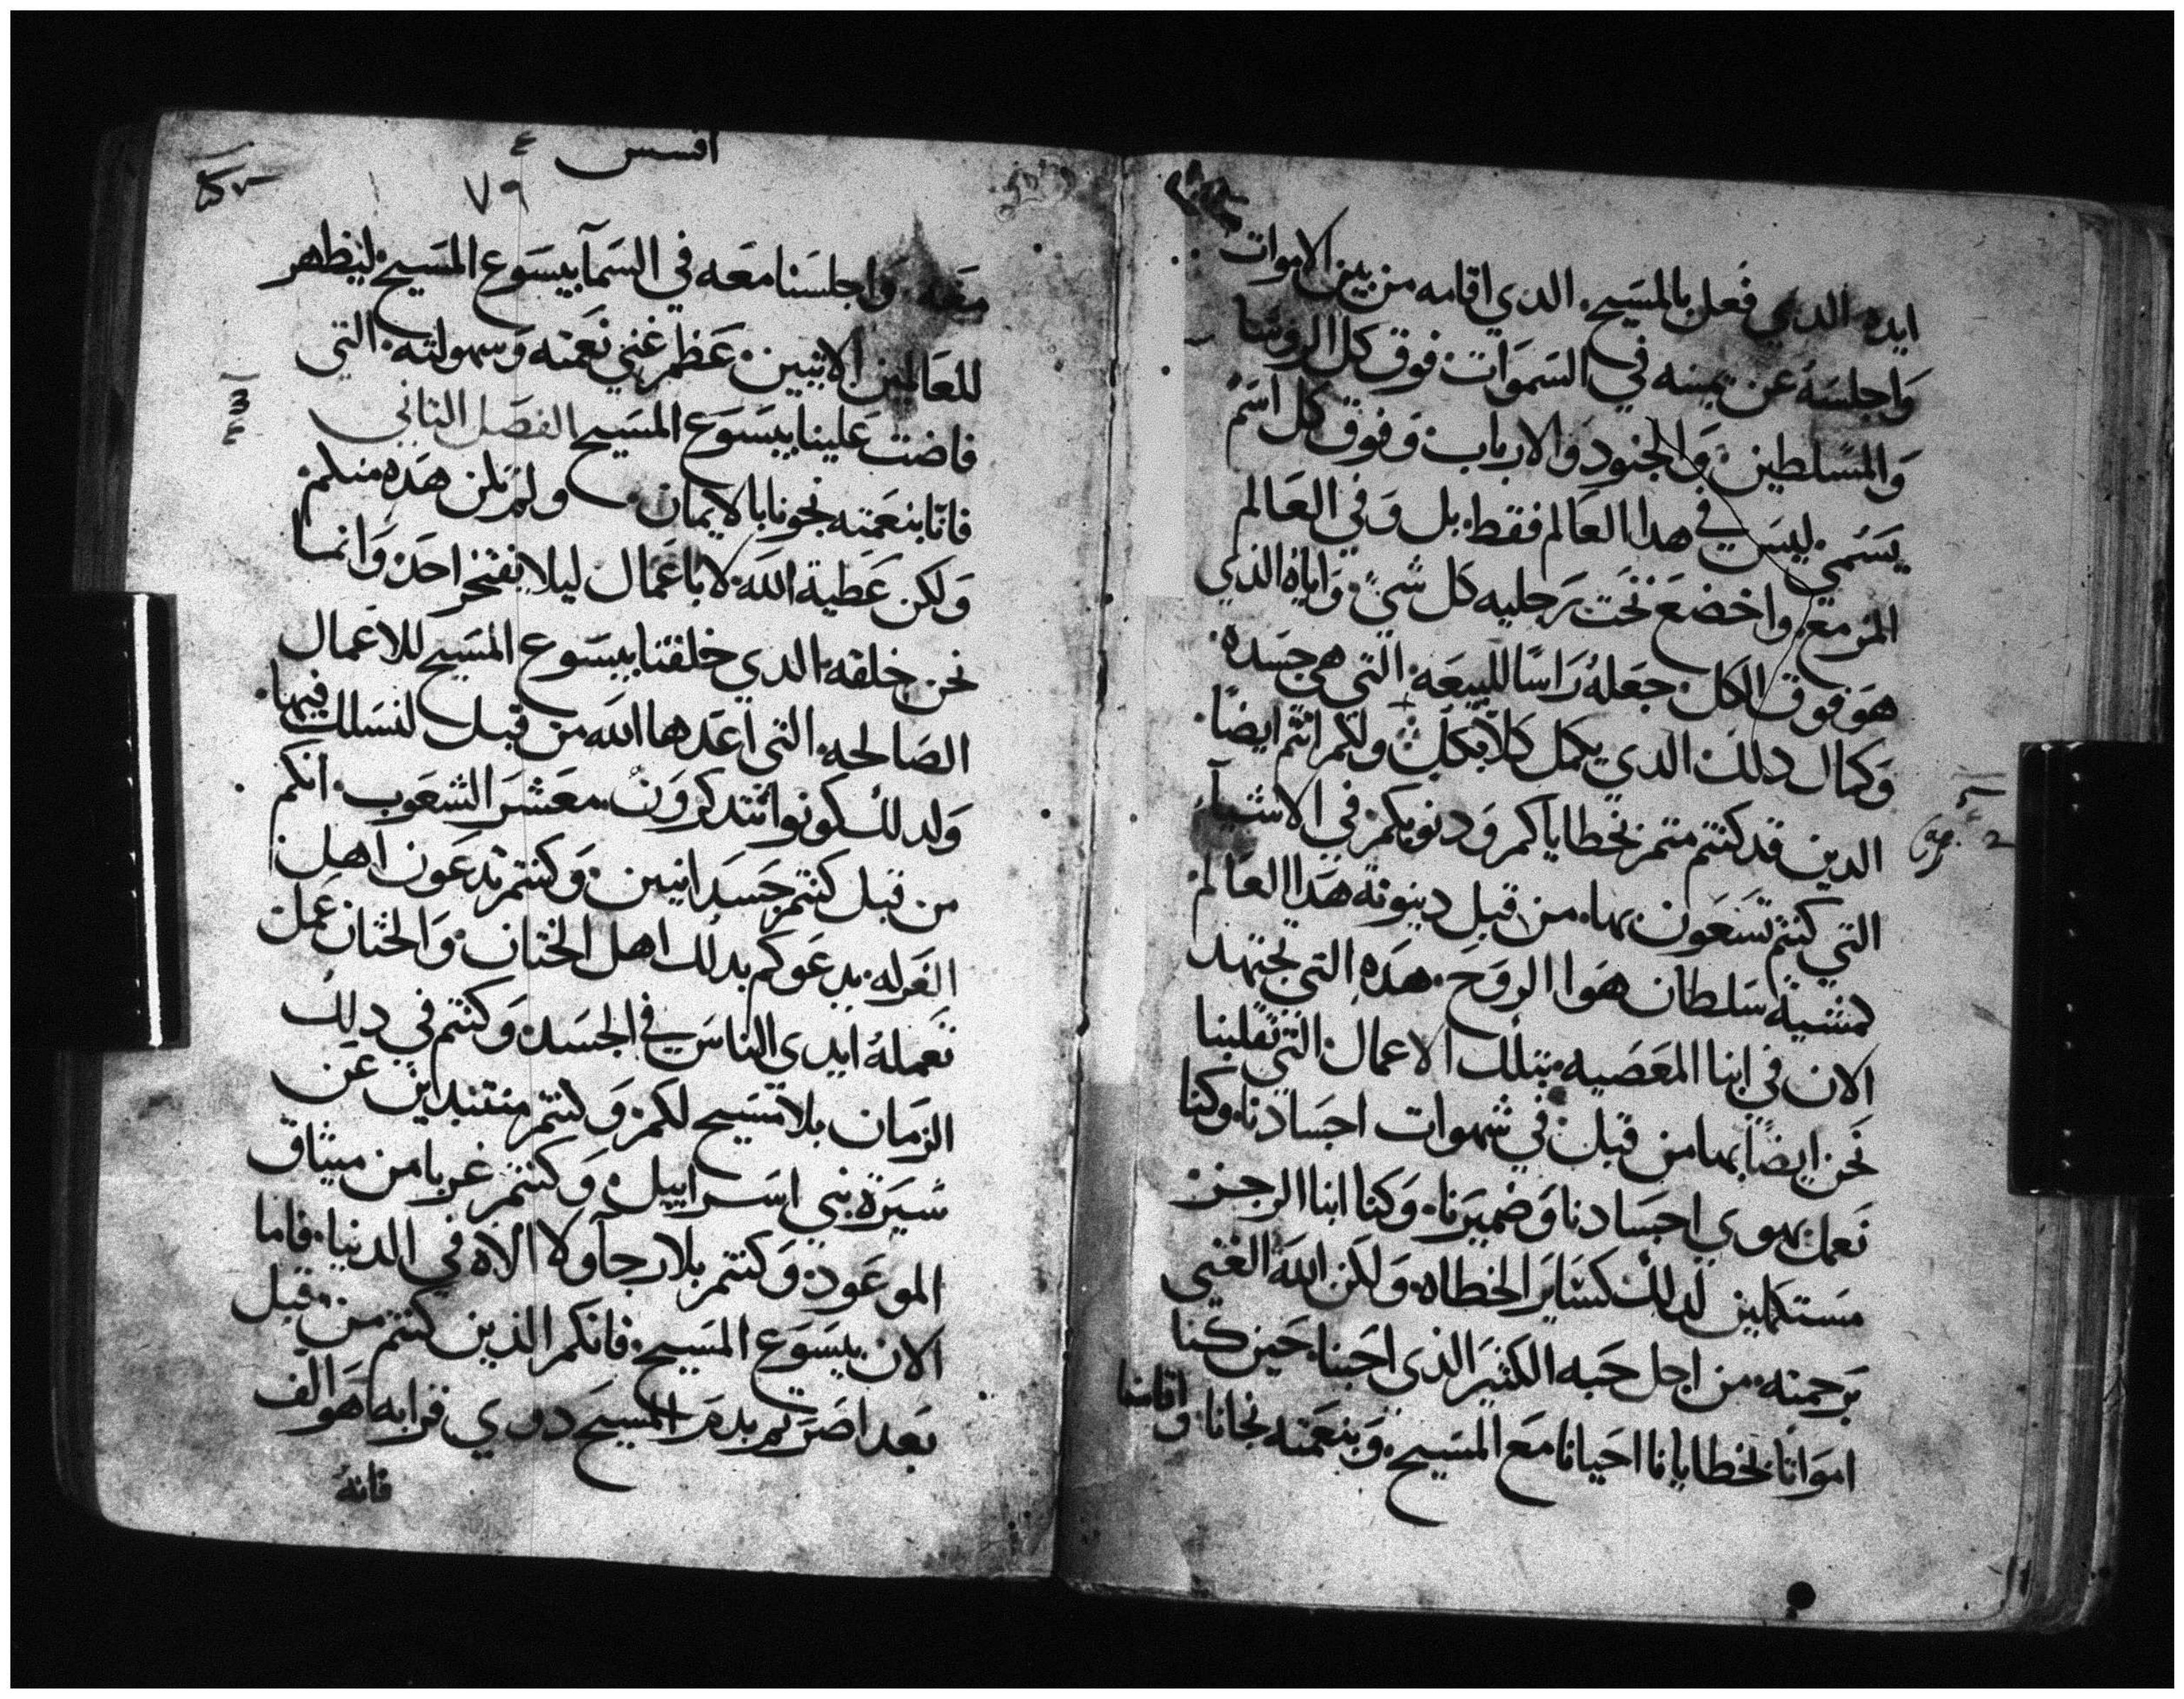 ايده الدي فعل بالمسيح. الدي اقامه من بين الاموات
واجلسه عن يمينه في السموات فوق كل الروسا
والمسلطين والجنود والارباب وفوق كل اسم
يسمي ليس في هدا العالم فقط بل وفي العالم
المزمع واخضع تحت رجليه كل شي واياه الذي
هو فوق الكل جعله راسا للبيعه التي هي جسده
وكمال دلك الدي يكمل كلا بكل ولكم انتم ايضا
الدين قد كنتم متم بخطاياكم ودنوبكم في الاشيا
التي كنتم تسعون بها من قبل دينونة هدا العالم
لمشية سلطان هوا الروح هده التي تجتهد
الان في ابنا المعصيه بتلك الاعمال التي تقلبنا
نحن ايضا بها من قبل في شهوات اجسادنا وكنا
نعمل بهوي اجسادنا وضميرنا وكنا ابنا الرجز
مستكملين لدلك كساير الخطاه ولكن الله الغني
برحمته من اجل حبه الكثير الذي احبنا حين كنا
امواتا بخطايانا احيانا مع المسيح وبنعمته نجانا واقامنا
افسس
٧٩
معه واجلسنا معه في السما بيسوع المسيح ليظهر
للعالمين الاتيين عظم غني نعمته وسهولته التي
فاضت علينا بيسوع المسيح الفصل التاني
فانا بنعمته نجونا بالايمان ولم تكن هده منكم
ولكن عطية الله لا باعمال ليلا يفتخر احد وانما
نحن خلقه الدي خلقنا بيسوع المسيح للاعمال
الصالحه التي اعدها الله من قبل لنسلك فيها
ولدلك كونوا تتدكرون معشر الشعوب انكم
من قبل كنتم جسدانيين وكنتم تدعون اهل
الغرله يدعوكم بدلك اهل الختان والختان عمل
تعمله ايدي الناس في الجسد وكنتم في دلك
الزمان بلا مسيح لكم وكنتم منتبدين عن
سيرة بني اسراييل وكنتم غربا من ميثاق
الموعود وكنتم بلا رجا ولا الاه في الدنيا فاما
الان بيسوع المسيح فانكم الذين كنتم من قبل
بعدا صرتم بدم المسيح دوي قرابه هو الف
فانه